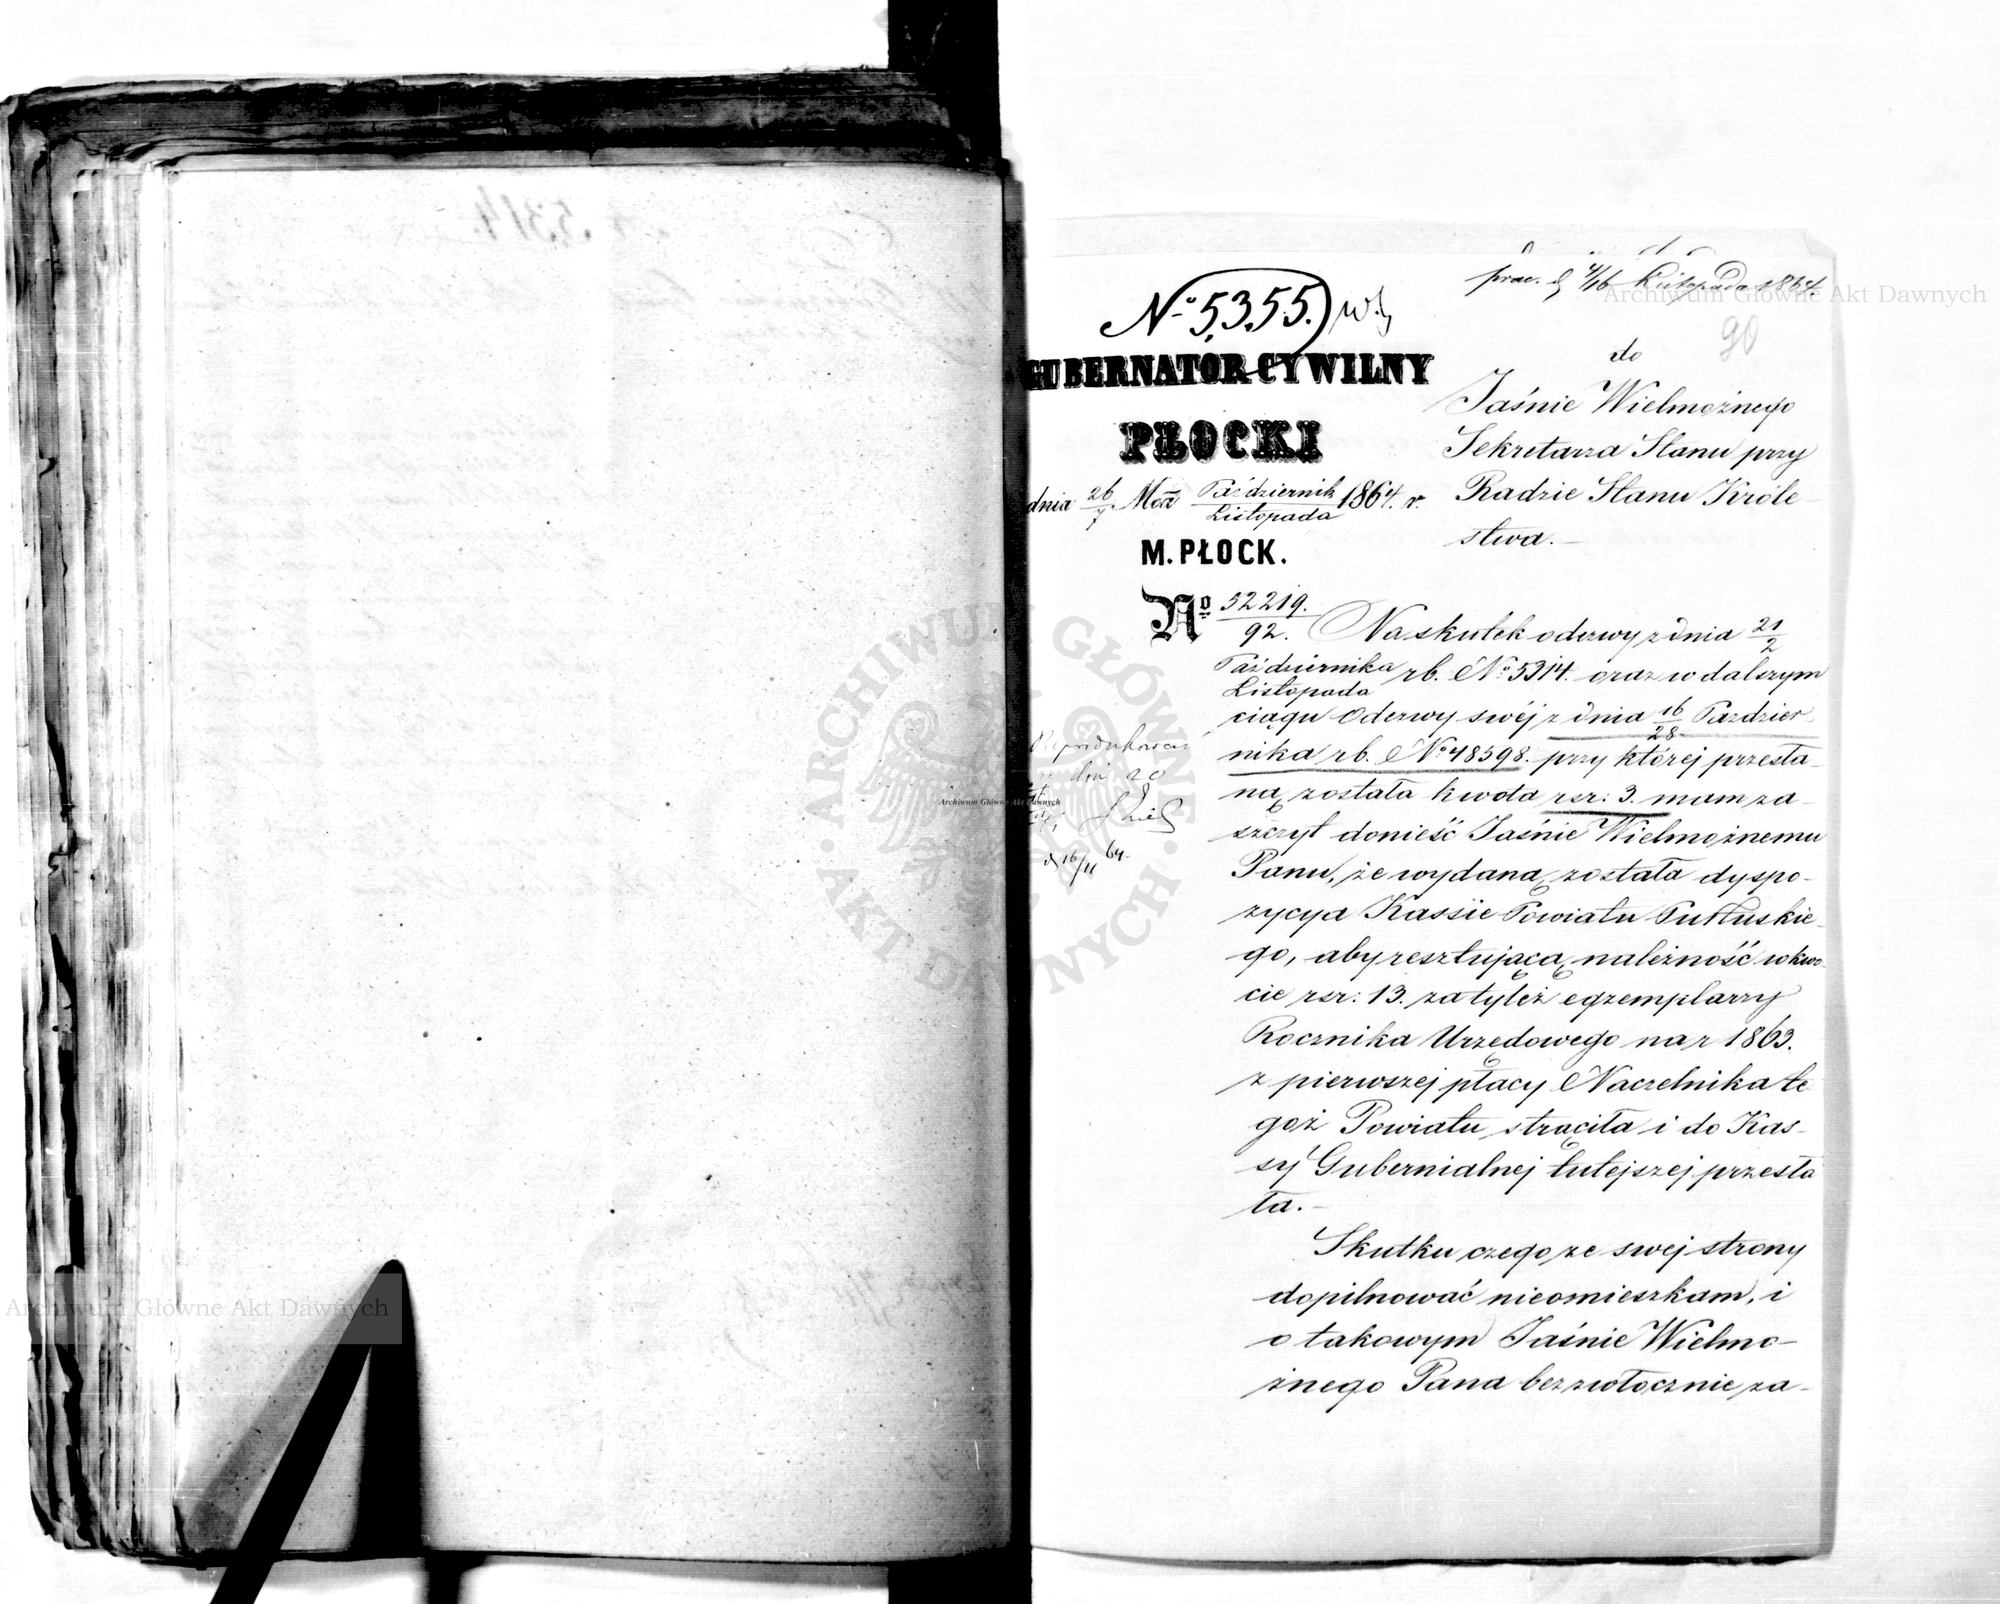 prae. d. 4/16 Listopada 1864
No 5355.
90
GUBERNATOR CYWILNY
PŁOCKI
dnia 26/7 Mca Październik/Listopada 1864. r.
M. PŁOCK.
No 52219./92.
do
Jaśnie Wielmożnego
Sekretarza Stanu przy
Radzie Stanu Króle
stwa.—
Na skutek odezwy z dnia 21/2
Października/Listopada rb. No 5314. oraz w dalszym
ciągu Odezwy swéj z dnia 16/28 Pazdzier
nika rb. No 48598. przy któréj przesła-
ną została kwota rsr: 3. mam za-
szczyt donieść Jaśnie Wielmożnemu
Panu, że wydaną została dyspo-
zycya Kassie Powiatu Pułtuskie-
go, aby resztującą należność w kwo-
cie rsr: 13. za tyleż egzemplarzy
Rocznika Urzędowego na r 1863.
z pierwszej płacy Naczelnika te
goż Powiatu strąciła i do Kas-
sy Gubernialnej tutejszej przesła
ła.—
Skutku czego ze swej strony
dopilnować nieomieszkam, i
o takowym Jaśnie Wielmo-
żnego Pana bezzwłocznie za-
dni 20
d 16/11 64.
Archiwum Główne Akt Dawnych
Archiwum Główne Akt Dawnych
Archiwum Główne Akt Dawnych
ARCHIWUM GŁÓWNE
AKT DAWNYCH